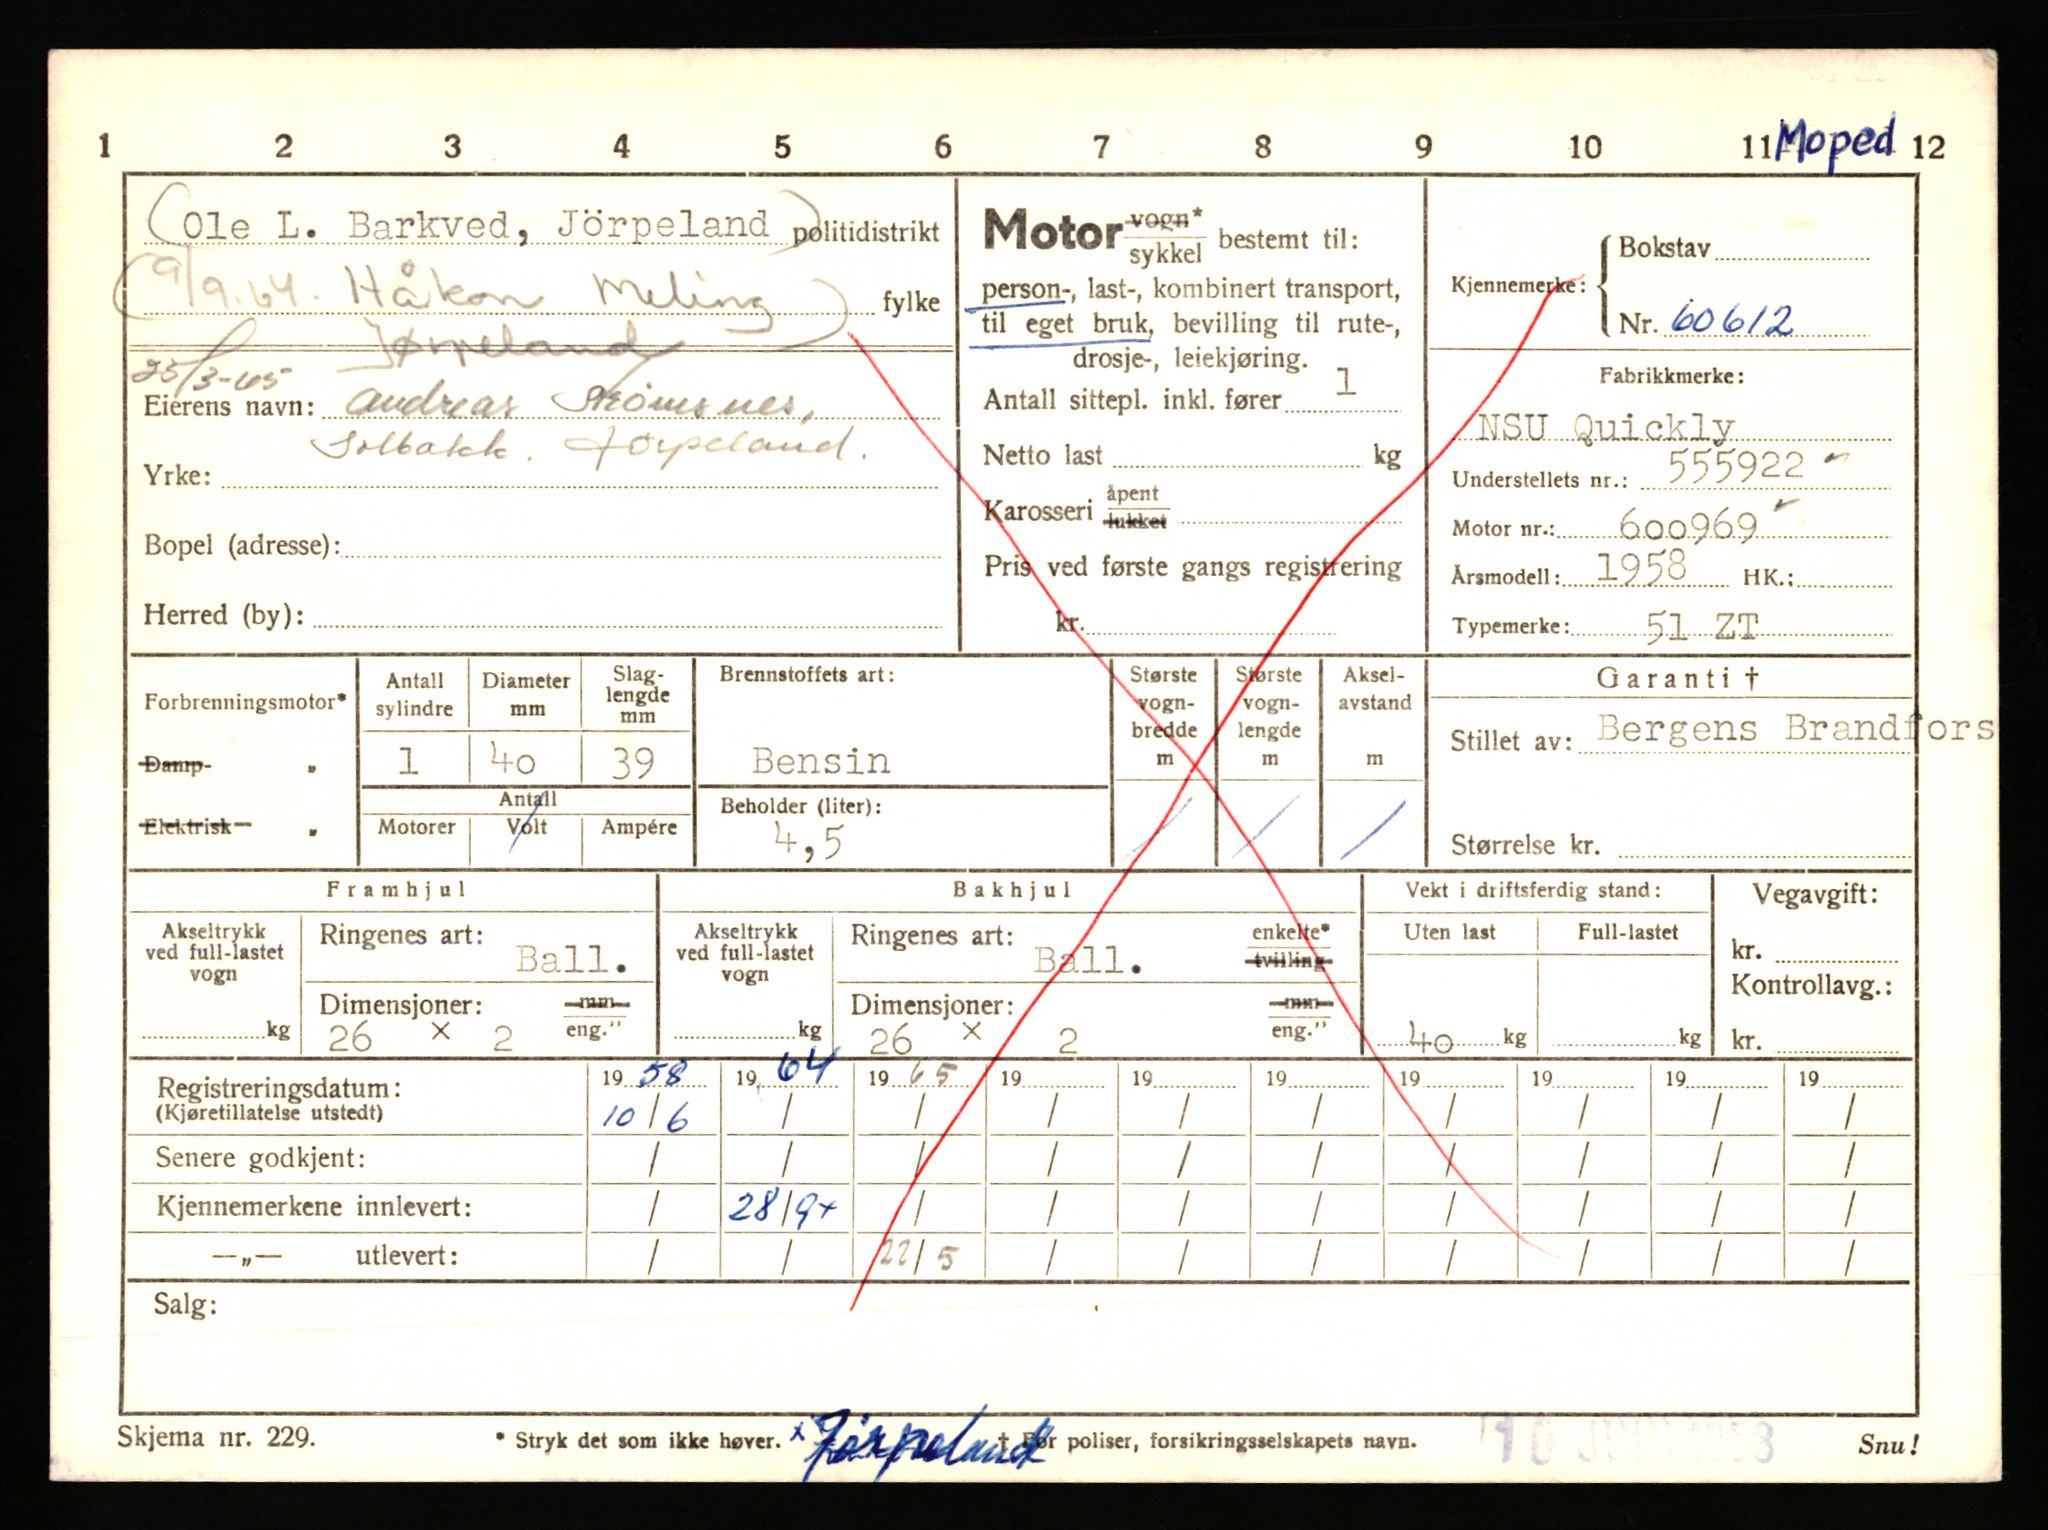 1 2 3 4 5 6 7 8 9 10 11 Moped 12
(Ole L. Barkved, Jörpeland) politidistrikt
(9/9.64. Håkon Meling) fylke
Jørpeland
25/3-65
Eierens navn: Andreas Strömsnes,
Solbakk. Jörpeland.
Yrke:
Bopel (adresse):
Herred (by):
Motor vogn* sykkel bestemt til:
person-, last-, kombinert transport,
til eget bruk, bevilling til rute-,
drosje-, leiekjøring.
Antall sittepl. inkl. fører 1
Netto last kg
Karosseri åpent lukket
Pris ved første gangs registrering
kr.
Kjennemerke: Bokstav
Nr. 60612
Fabrikkmerke:
NSU Quickly
Understellets nr.: 555922
Motor nr.: 600969
Årsmodell: 1958 HK.:
Typemerke: 51 ZT
Forbrenningsmotor*
Damp- "
Elektrisk- "
Antall sylindre
Diameter mm
Slag-lengde mm
1 40 39
Antall
Motorer Volt Ampére
Brennstoffets art:
Bensin
Beholder (liter):
4,5
Største vogn-bredde m
Største vogn-lengde m
Aksel-avstand m
Garanti †
Stillet av: Bergens Brandfors
Størrelse kr.
Framhjul
Akseltrykk ved full-lastet vogn
kg
Ringenes art: Ball.
Dimensjoner: mm
26 x 2 eng."
Bakhjul
Akseltrykk ved full-lastet vogn
kg
Ringenes art: Ball. enkelte* tvilling
Dimensjoner: mm
26 x 2 eng."
Vekt i driftsferdig stand:
Uten last Full-lastet
40 kg kg
Vegavgift:
kr.
Kontrollavg.:
kr.
Registreringsdatum: 19 58 19 64 19 65 19 19 19 19 19 19 19
(Kjøretillatelse utstedt) 10/6 / / / / / / / / /
Senere godkjent: / / / / / / / / / /
Kjennemerkene innlevert: / 28/9+ / / / / / / / /
—„— utlevert: / / 22/5 / / / / / / /
Salg:
Skjema nr. 229. * Stryk det som ikke høver. x Jörpeland † Før poliser, forsikringsselskapets navn. Snu!